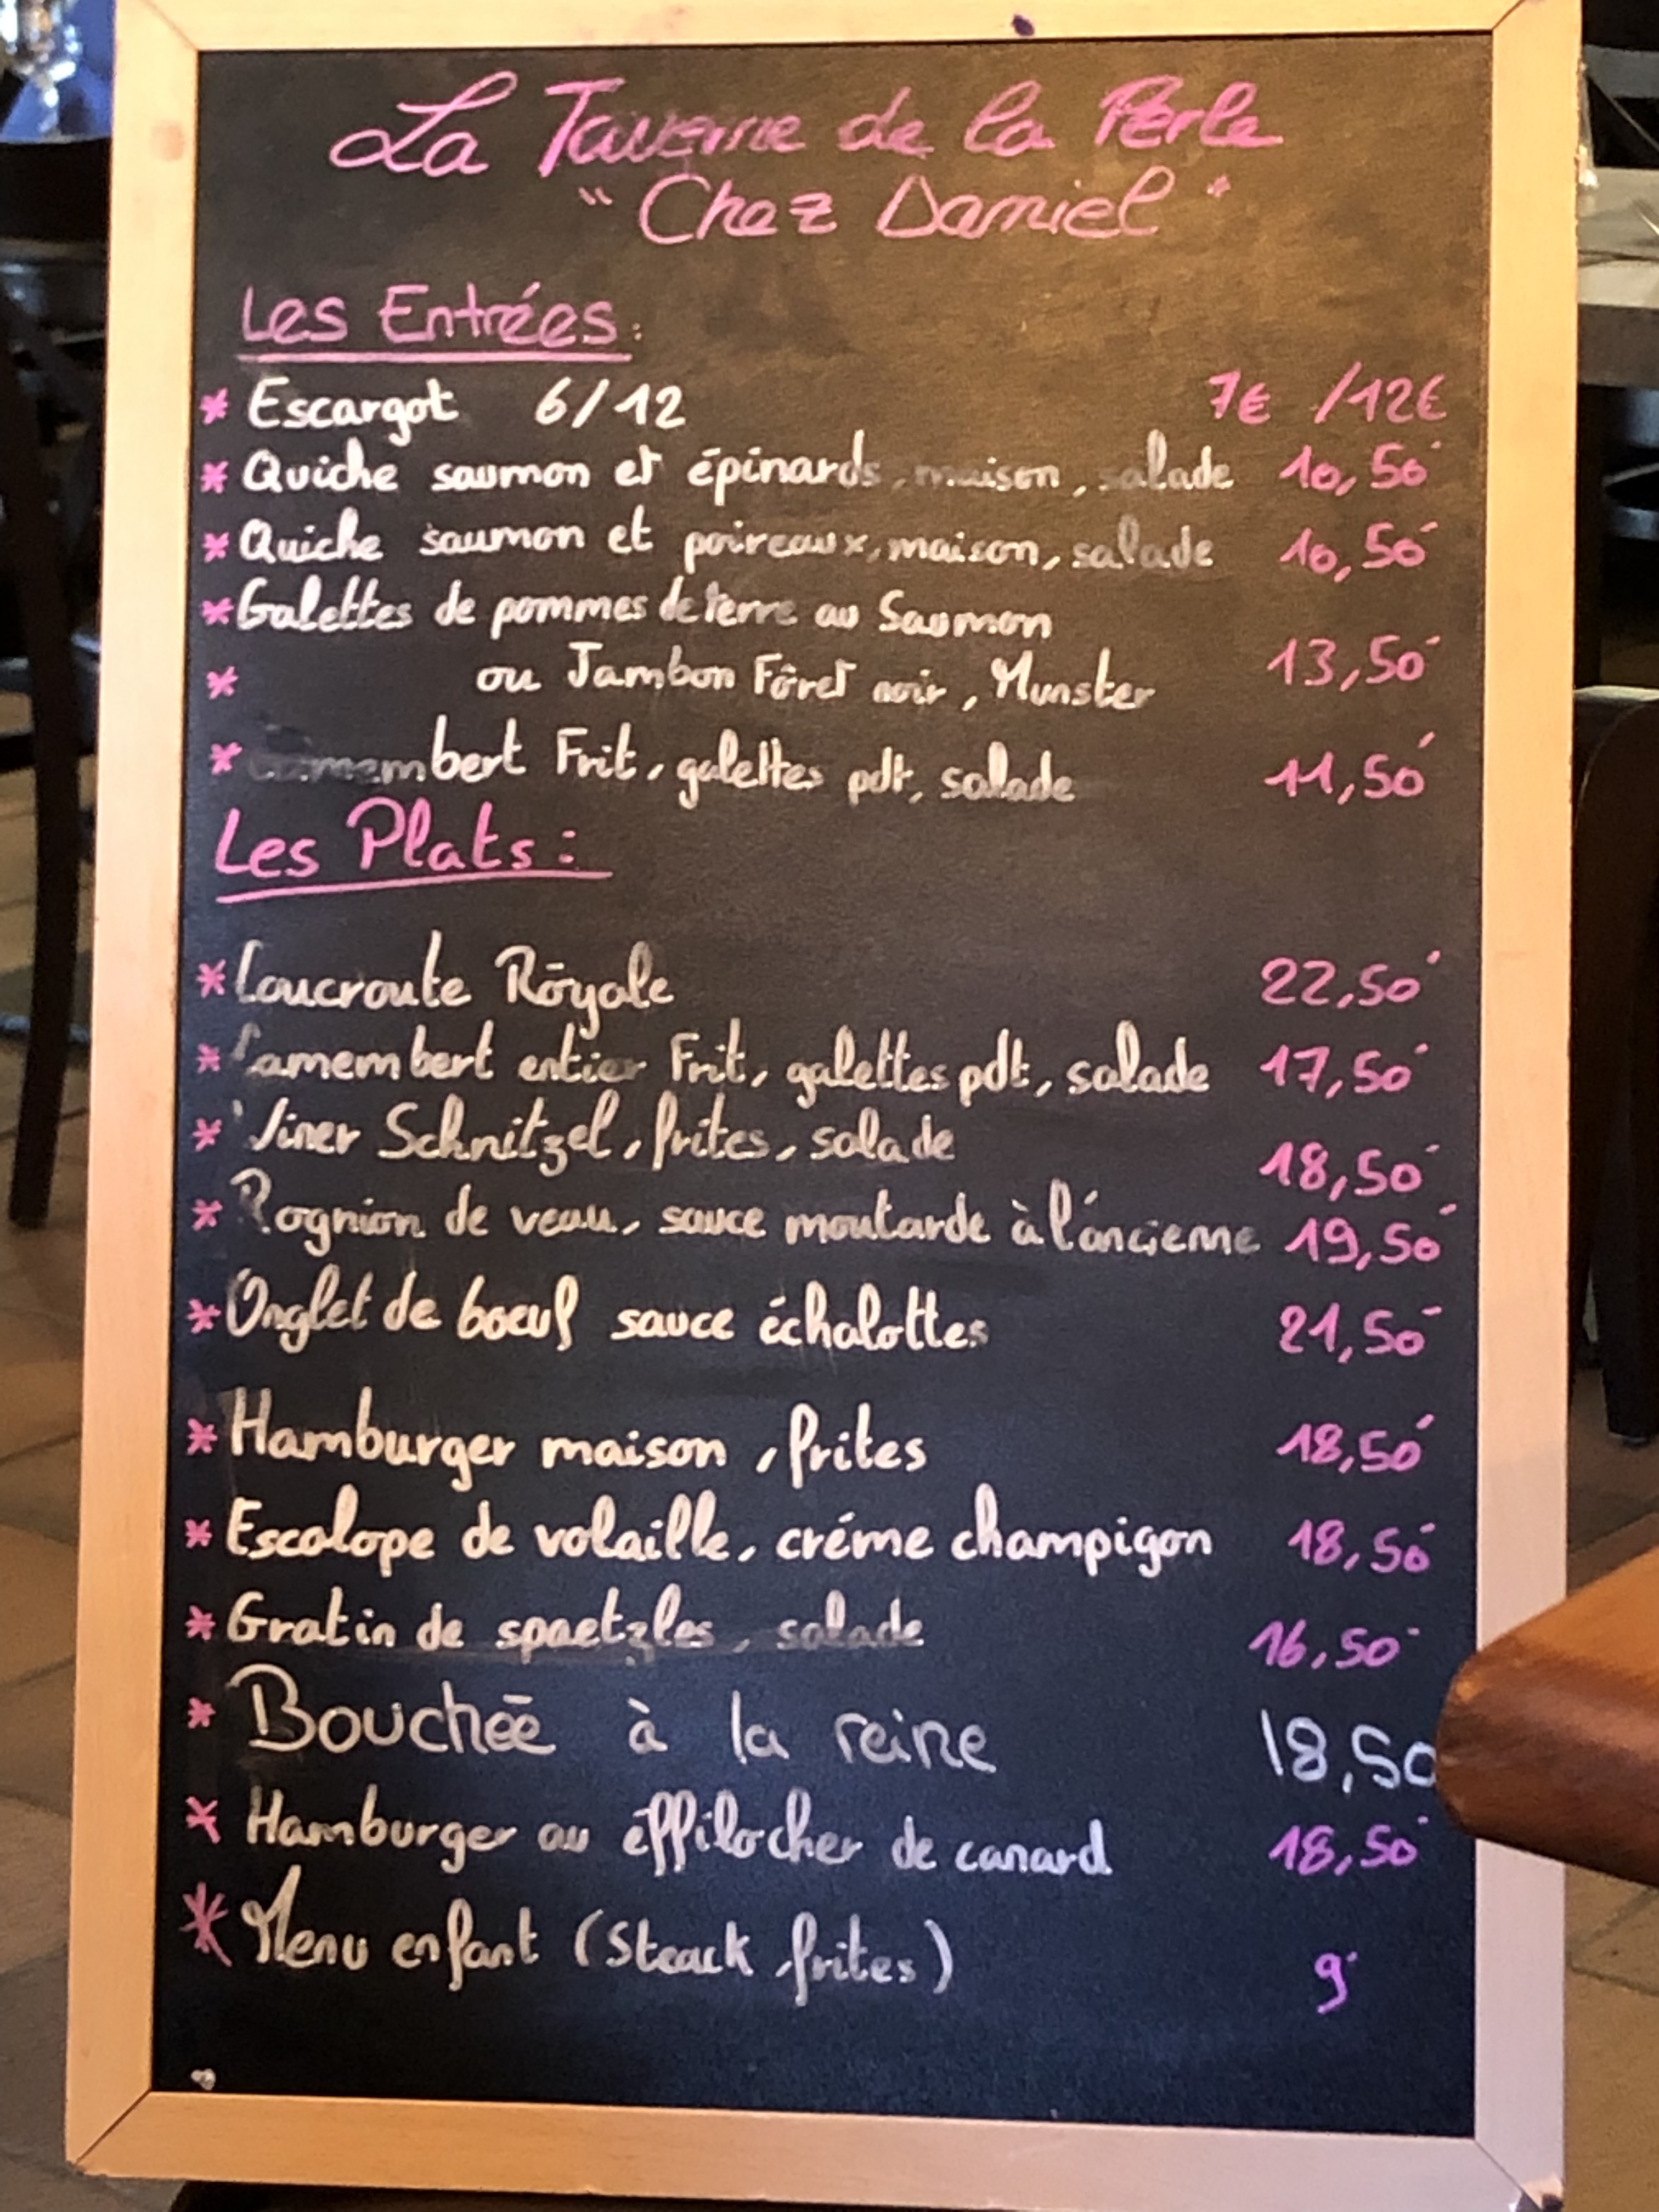 La Taverne de la Perle
"Chez Daniel"
Les Entrées:
* Escargot 6/12 7€ /12€
* Quiche saumon et épinards, maison, salade 10,50
* Quiche saumon et poireaux, maison, salade 10,50
* Galettes de pommes de terre au Saumon
* ou Jambon Fôret noir, Munster 13,50
* Camembert Frit, galettes pdt, salade 11,50
Les Plats:
* Coucroute Röyale 22,50
* Camembert entier Frit, galettes pdt, salade 17,50
* Viner Schnitzel, frites, salade 18,50
* Rognion de veau, sauce moutarde à l'ancienne 19,50
* Onglet de boeuf sauce échalottes 21,50
* Hamburger maison, frites 18,50
* Escalope de volaille, créme champigon 18,50
* Gratin de spaetzles, salade 16,50
* Bouchée à la reine 18,50
* Hamburger au éffilocher de canard 18,50
* Menu enfant (Steack, frites) 9